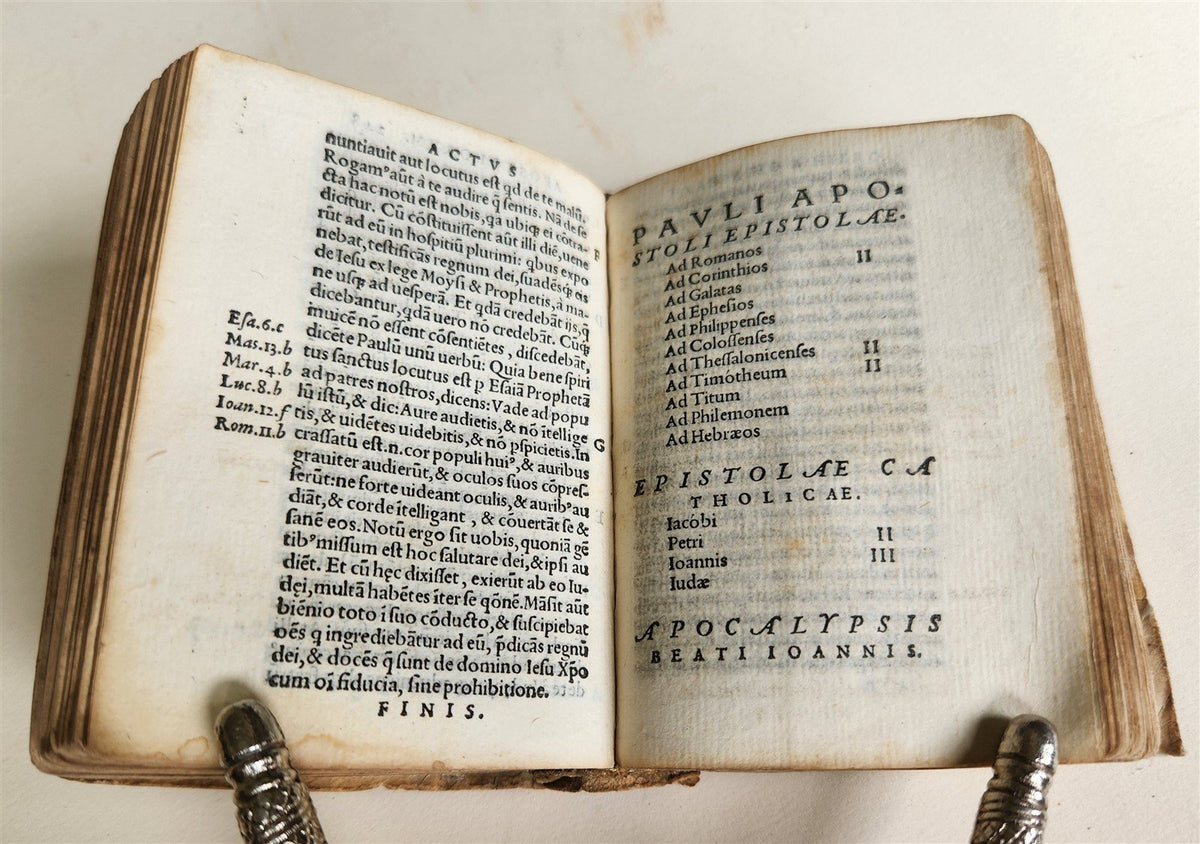 ACTVS
nuntiauit aut locutus est qd de te malū.
Rogam⁹ aūt à te audire q̄ sentis. Nā de se
cta hac notū est nobis, qa ubiqꝫ ei cōtra-
dicitur. Cū cōstituissent aūt illi diē, uene
rūt ad eū in hospitiū plurimi: qbus expo
F
nebat, testificās regnum dei, suadēsqꝫ eis
de Iesu ex lege Moysi & Prophetis, à ma-
ne usqꝫ ad uesperā. Et qdā credebāt ijs, q̄
dicebantur, qdā uero nō credebāt. Cūqꝫ
inuicē nō essent cōsentiētes, discedebāt,
dicēte Paulū unū uerbū: Quia bene spiri
tus sanctus locutus est p Esaiā Prophetā
ad patres nostros, dicens: Vade ad popu
lū istū, & dic: Aure audietis, & nō ītellige
G
tis, & uidētes uidebitis, & nō pspicietis. In
crassatū est.n.cor populi hui⁹, & auribus
grauiter audierūt, & oculos suos cōpres-
serūt: ne forte uideant oculis, & aurib⁹ au
diāt, & corde ītelligant, & cōuertāt se &
sanē eos. Notū ergo sit uobis, quoniā gē
tib⁹ missum est hoc salutare dei, & ipsi au
diēt. Et cū hęc dixisset, exierūt ab eo Iu-
dęi, multā habētes īter se qōnē. Māsit aūt
biēnio toto ī suo cōducto, & suscipiebat
oēs q ingrediebātur ad eū, p̄dicās regnū
dei, & docēs q̄ sunt de domino Iesu Xp̄o
cum oī fiducia, sine prohibitione.
FINIS.
Esa.6.c
Mas.13.b
Mar.4.b
Luc.8.b
Ioan.12.f
Rom.11.b
PAVLI APO-
STOLI EPISTOLAE.
Ad Romanos
Ad Corinthios II
Ad Galatas
Ad Ephesios
Ad Philippenses
Ad Colossenses
Ad Thessalonicenses II
Ad Timotheum II
Ad Titum
Ad Philemonem
Ad Hebræos
EPISTOLAE CA
THOLICAE.
Iacobi
Petri II
Ioannis III
Iudæ
APOCALYPSIS
BEATI IOANNIS.